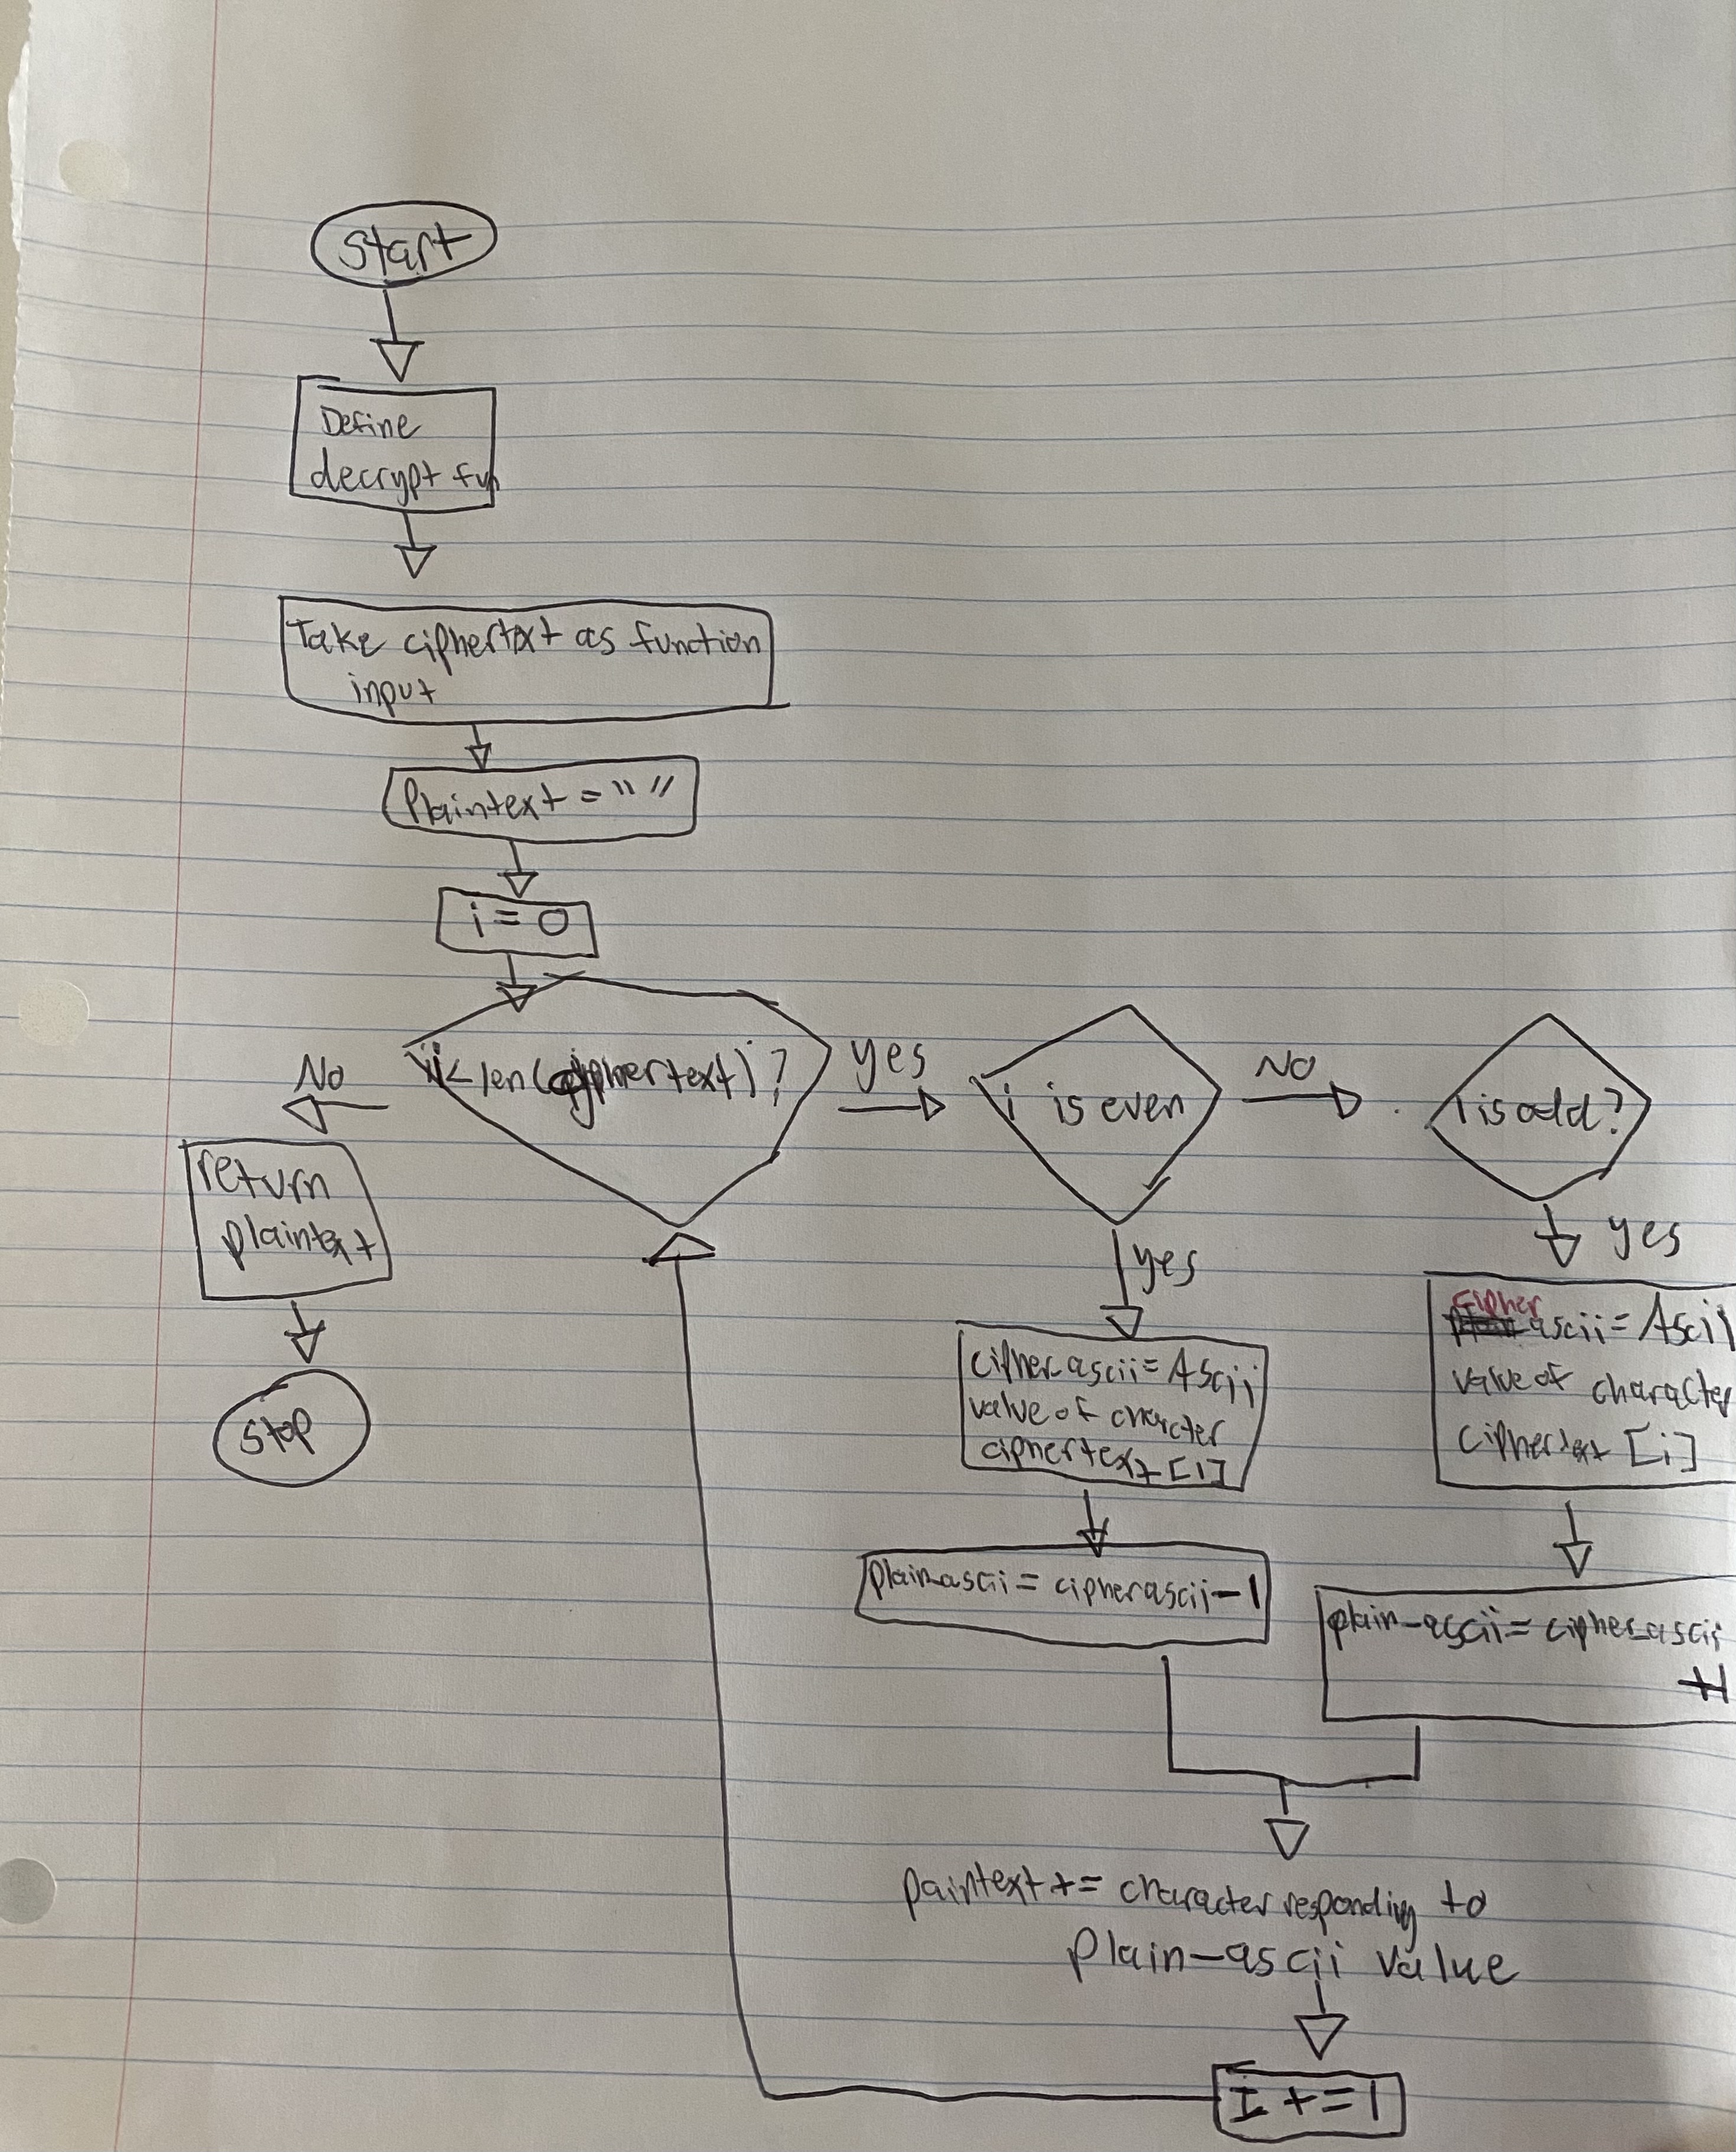 start
Define
decrypt fun
Take ciphertext as function
input
Plaintext = " "
i = 0
i < len(ciphertext)?
No
yes
return
plaintext
stop
i is even
NO
i is odd?
yes
yes
cipher_ascii = Ascii
value of character
ciphertext [i]
cipher
ascii = Ascii
value of character
ciphertext [i]
plain_ascii = cipher ascii - 1
plain-ascii = cipher_ascii
+1
paintext += character responding to
plain-ascii value
I += 1